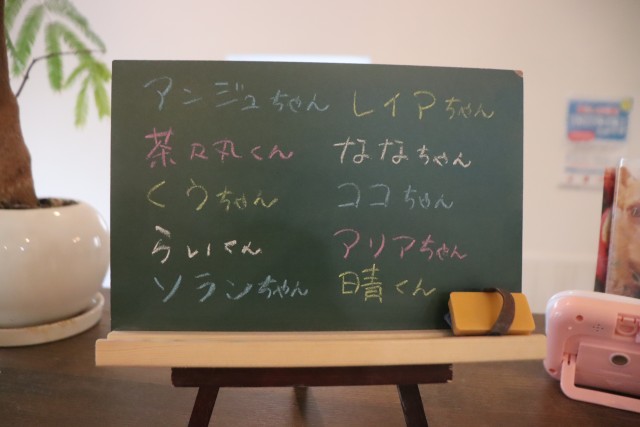 アンジュちゃん レイアちゃん
茶々丸くん ななちゃん
くうちゃん ココちゃん
らいくん アリアちゃん
ソランちゃん 晴くん